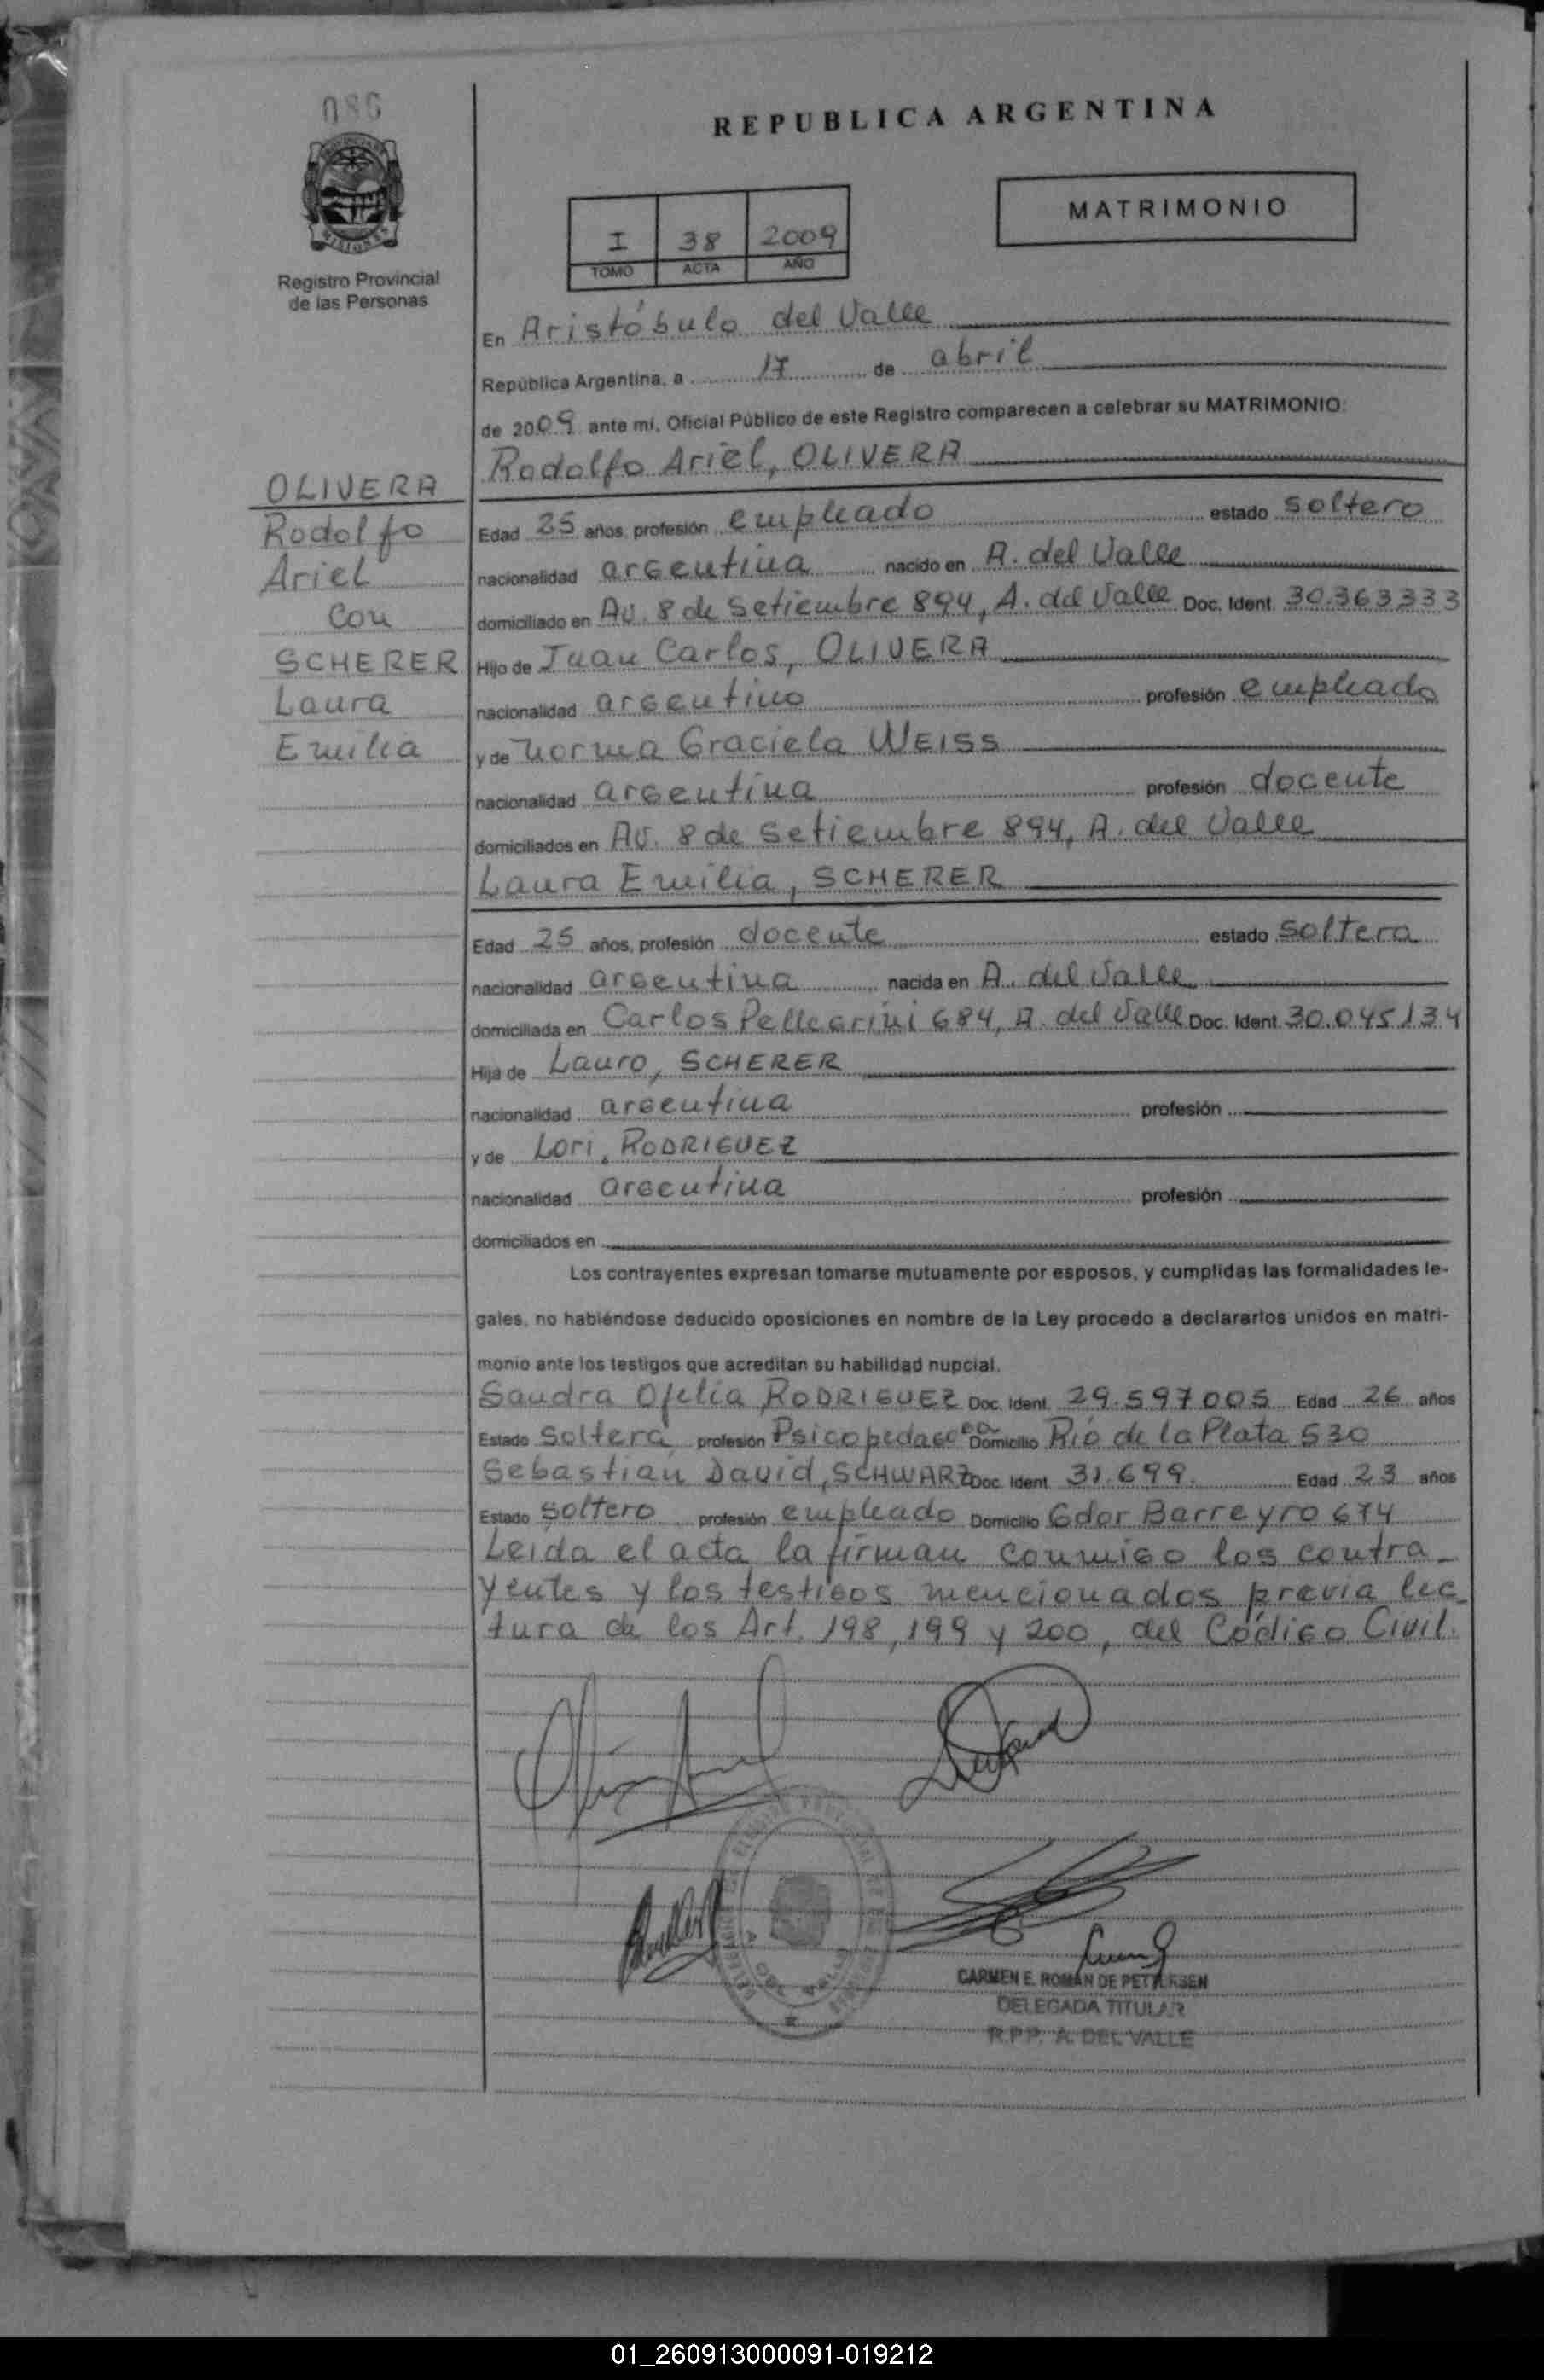 086
REPUBLICA ARGENTINA
MATRIMONIO
I 38 2009
TOMO ACTA AÑO
MISIONES
Registro Provincial
de las Personas
En Aristóbulo del Valle
República Argentina, a 17 de abril
de 2009 ante mi, Oficial Público de este Registro comparecen a celebrar su MATRIMONIO:
Rodolfo Ariel, OLIVERA
OLIVERA
Rodolfo
Ariel
con
SCHERER
Laura
Emilia
Edad 25 años, profesión empleado estado soltero
nacionalidad argentina nacido en A. del Valle
domiciliado en Av. 8 de Setiembre 894, A. del Valle Doc. Ident. 30.363333
Hijo de Juan Carlos, OLIVERA
nacionalidad argentino profesión empleado
y de Norma Graciela WEISS
nacionalidad argentina profesión docente
domiciliados en Av. 8 de Setiembre 894, A. del Valle
Laura Emilia, SCHERER
Edad 25 años, profesión docente estado soltera
nacionalidad argentina nacida en A. del Valle
domiciliada en Carlos Pellegrini 684, A. del Valle Doc. Ident. 30.045134
Hija de Lauro, SCHERER
nacionalidad argentina profesión
y de Lori, RODRIGUEZ
nacionalidad argentina profesión
domiciliados en
Los contrayentes expresan tomarse mutuamente por esposos, y cumplidas las formalidades le-
gales, no habiéndose deducido oposiciones en nombre de la Ley procedo a declararlos unidos en matri-
monio ante los testigos que acreditan su habilidad nupcial.
Sandra Ofelia RODRIGUEZ Doc. Ident. 29.597005 Edad 26 años
Estado Soltera profesión Psicopedagoga Domicilio Río de la Plata 530
Sebastian David, SCHWARZ Doc. Ident. 31.699. Edad 23 años
Estado soltero profesión empleado Domicilio Gdor Barreyro 674
Leida el acta la firman conmigo los contra-
yentes y los testigos mencionados previa lec-
tura de los Art. 198, 199 y 200, del Código Civil.
CARMEN E. ROMÁN DE PETTERSEN
DELEGADA TITULAR
R.P.P. A. DEL VALLE
01_260913000091-019212